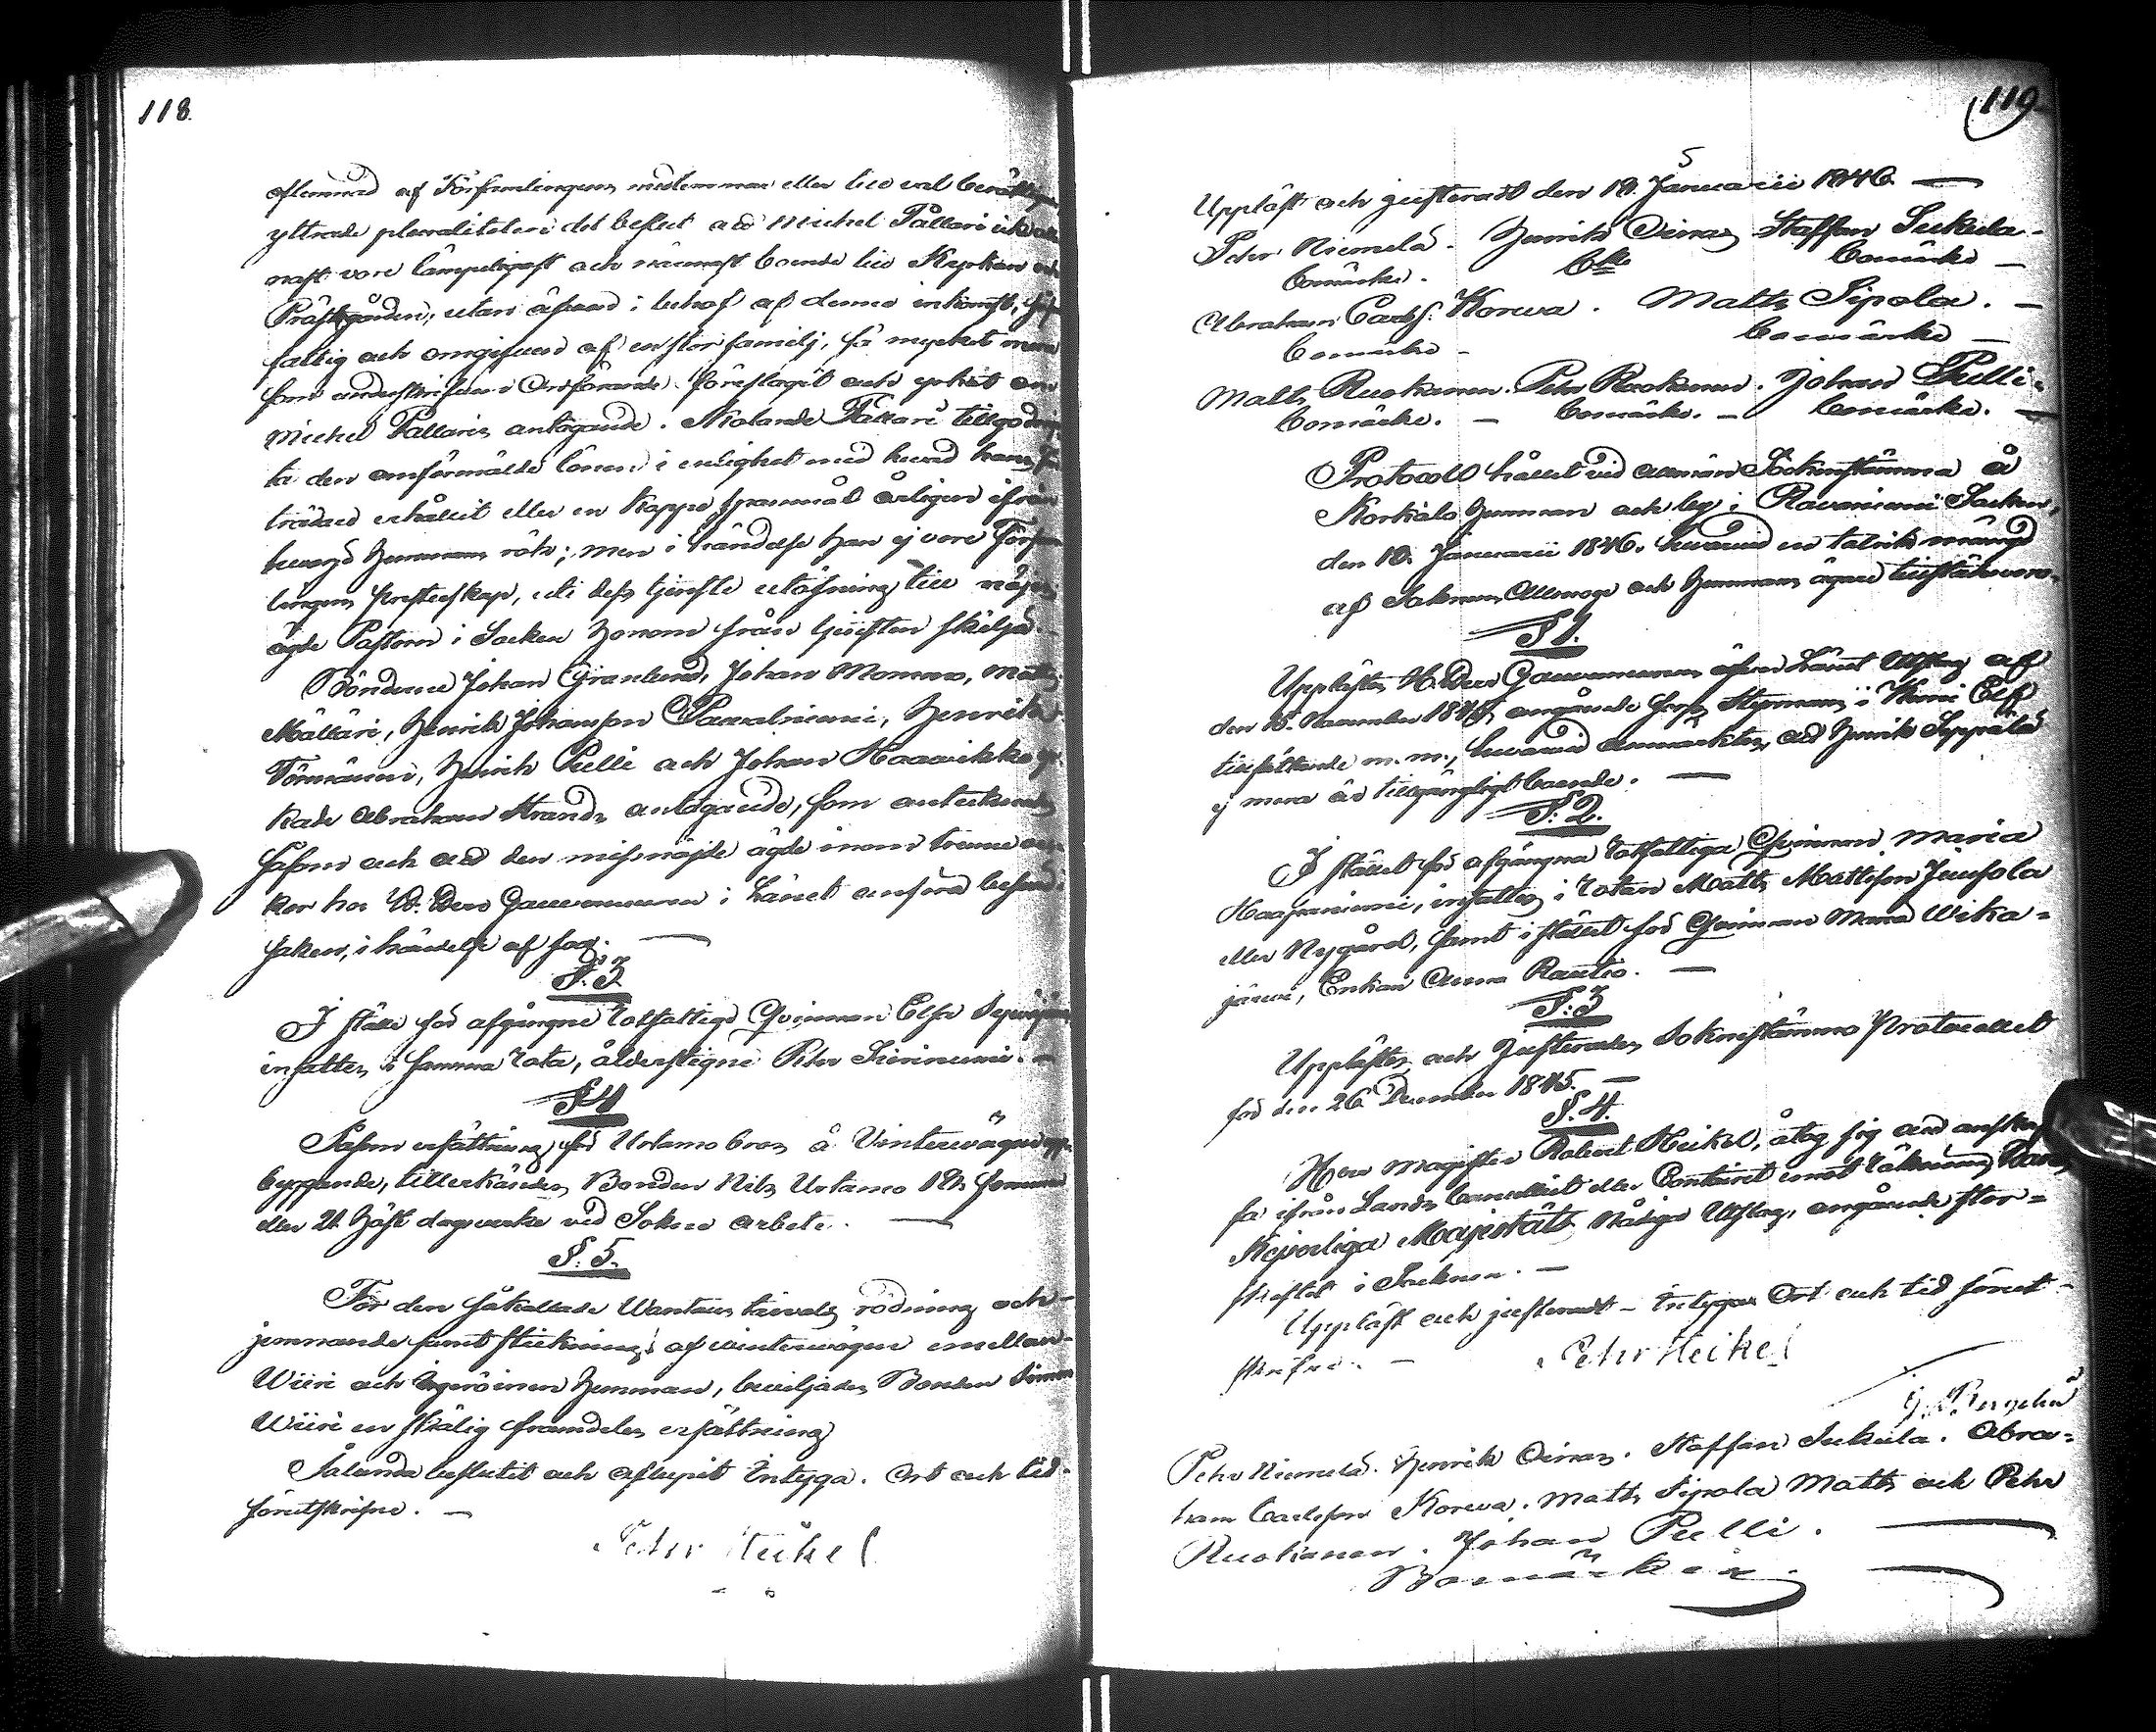 118.
aflemnad af Församlingens medlemmar eller till val berättigade
yttrade pluraliteten i det beslut att Michel Pållari icke alle-
nast vore lämpeligast och närmast boende till Kyrkan och
Prästgården, utan äfven i behof af denna inkomst, såsom
fattig och omgifven af en stor familj, så mycket mera
som undertecknad Ordförande föreslagit och yrkat om
Michel Pållaris antagande. Skolande Pållari tillgodnju-
ta den omförmälda lönen i enlighet med hvad hans före-
trädare erhållit eller en Kappe spannmål årligen ifrån
hvarje Hemmans rök; men i händelse han ej vore Församl-
lingens Presterskap, uti dess tjenste utöfning till nöjes,
ägde Pastorn i Socken honom från tjensten skilja. -
Bönderne Johan Granlund, Johan Mommo, Matts
Mälläri, Henrik Johansson Paavalniemi, Henrik
Törmänen, Henrik Pulli och Johan Haavikko yr-
kade Abraham Strands antagande, som antecknades
såsom och att den missnöjde ägde inom trenne vec-
kor hos H. Herr Gouverneuren i Länet anföra besvär i
saken, i händelse af fog. —
§. 3.
I stället för afgångne rotfattige Qvinnan Elsa
insattes i samma rota, ålderstigne Petter Sieriniemi. -
§ 4
Såsom ersättning för Urtamo bros å Vintervägen upp-
byggande, tillerkändes Bonden Nils Urtamo 12 sommar
eller 21 Höst dagsverke vid Sokne arbete. —
§. 5.
För den såkallade Wantaus taivals rödning och
jemnande samt stickning af vintervägen emellan
Wiiri och Hemman, beviljades Bonden Simon
Wiiri en skälig framdeles ersättning
Sålunda beslutit och aflupit Intyga. Ort och tid
förutskrifne. —
Petter Heikel
119
Uppläst och justeradt den 18 Januarii 1846. —
Peter Niemelä. Henrik Oinas Staffan Sukula.
bomärke. bmke bomärke —
Abraham Carls. Korva. Matts Sipola. —
bomärke - bomärke —
Matts Ruokanen. Petr Ruokanen. Johan Pulli.
bomärke. — bomärke. — bomärke. —
Protocoll hållet vid allmän Sockenstämma å
Korkalo Hemman och by i Rovaniemi Socken,
den 18 Januarii 1846. hvarvid en talrik mängd
af Soknens Allmoge och Hemmans ägare tillstädes voro.
§ 1.
Upplästes H. Herr Gouverneurens öfver Länet Utslag af
den 15 November 1845 angående fors Styrmans i Kemi Elf
tillsättande m. m., hvarvid anmärktes, att Henrik Seppälä
ej mera är tillgängligt boende. —
§. 2.
I stället för afgångna rotfattiga Qvinnan Maria
Haapaniemi, insattes i rotan Matts Mattsson Junsola
eller Nygård, samt i stället för Qvinnan Maria Wika=
järvi, Enkan Anna Rautio. —
§. 3
Upplästes och Justerades Soknestämmo Protocollet
för den 26 December 1845. —
§. 4.
Herr Magister Robert Heikel, åtog sig att anskaf-
fa ifrån Lands Cancelliet eller Contoiret emot räkning, Hans
Kejserliga Majestäts Nådiga Utslag, angående stor=
skiftet i Socknen. —
Uppläst och justeradt — Intygar Ort och tid förut-
skrefne. — Petter Heikel
Petr Niemelä. Henrik Oinas. Staffan Sukula. Abra=
ham Carlsson Korva. Matts Sipola Matts och Petr
Ruokanen. Johan Pulli. —
Bomärken. —